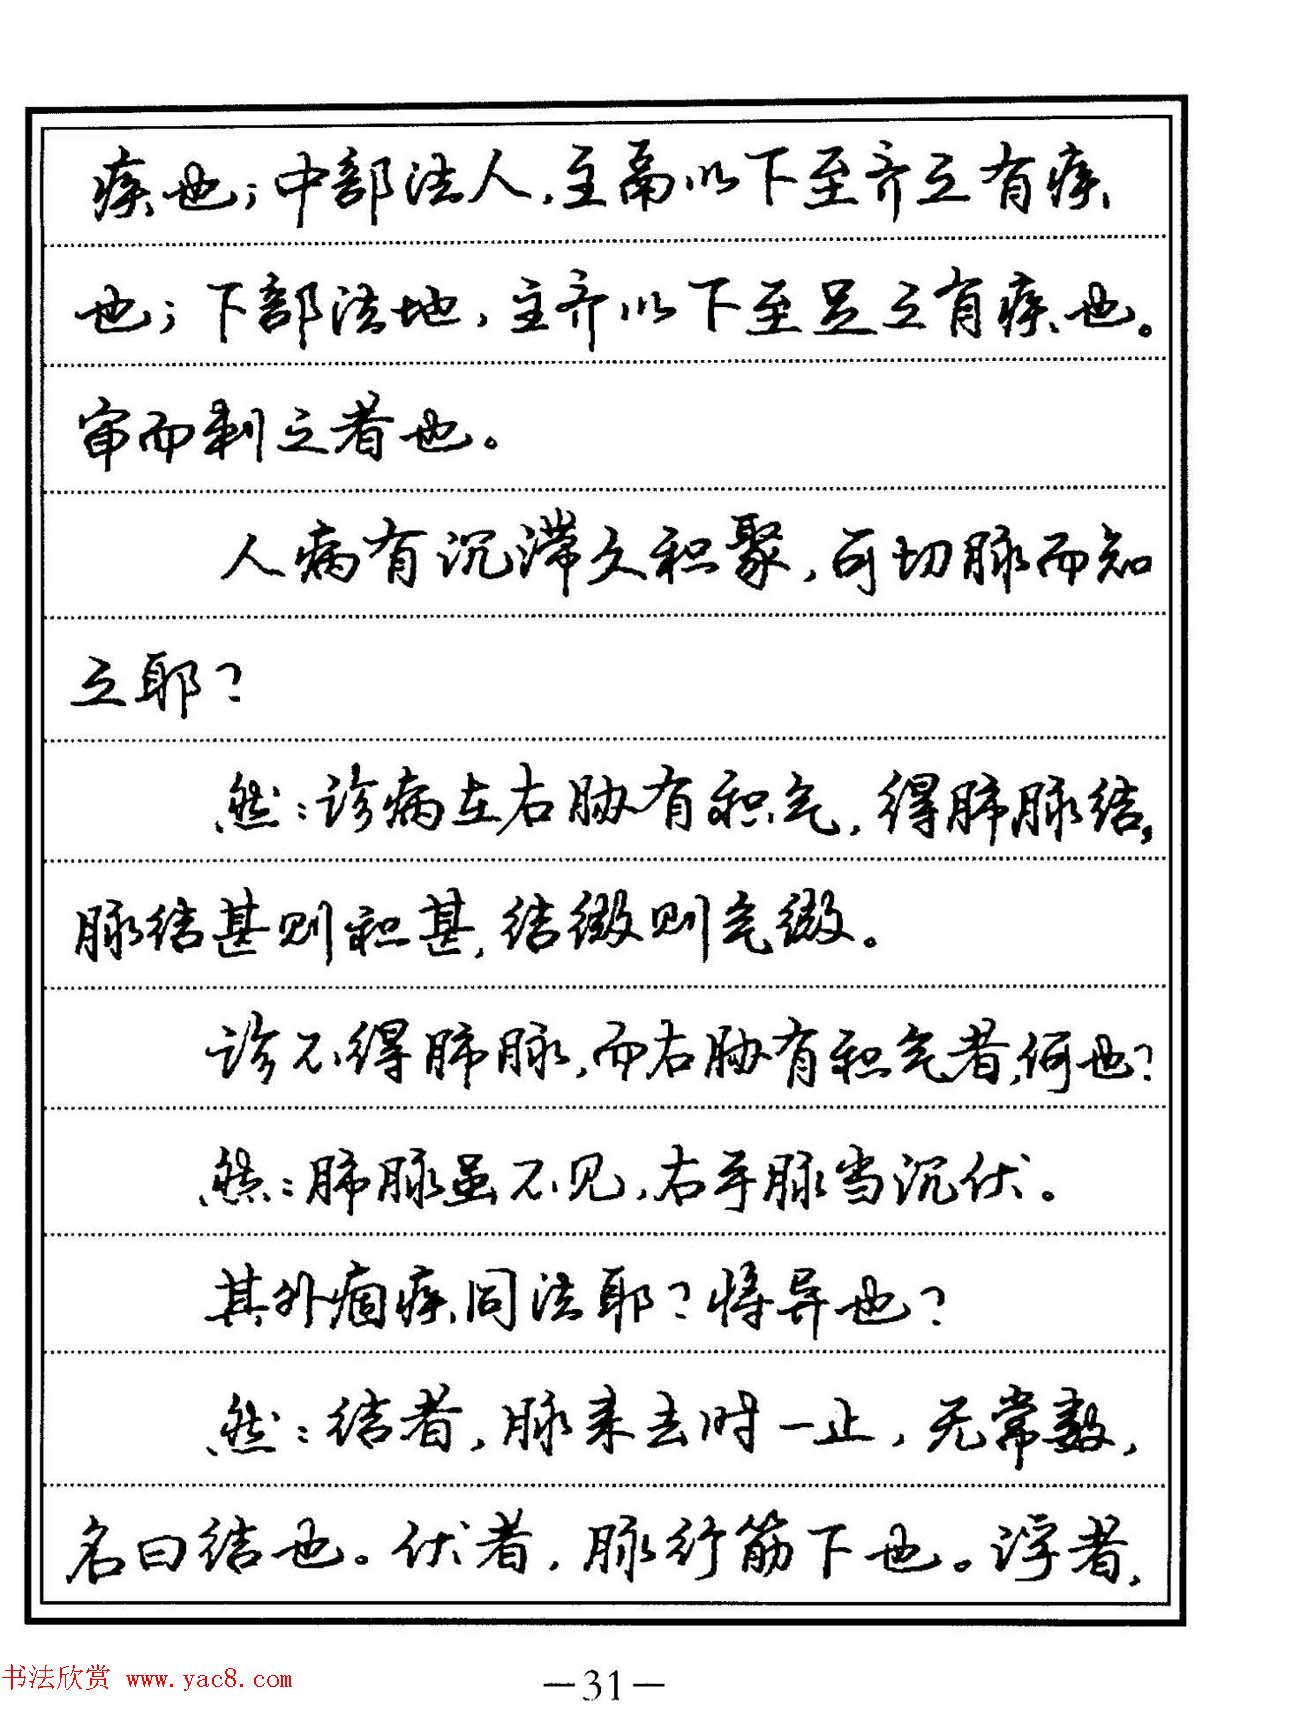 疾也；中部法人，主鬲以下至齐之有疾
也；下部法地，主齐以下至足之有疾也。
审而刺之者也。
人病有沉滞久积聚，可切脉而知
之耶？
然：诊病在右胁有积气，得肺脉结，
脉结甚则积甚，结微则气微。
诊不得肺脉，而右胁有积气者，何也？
然：肺脉虽不见，右手脉当沉伏。
其外痼疾同法耶？将异也？
然：结者，脉来去时一止，无常数，
名曰结也。伏者，脉行筋下也。浮者，
书法欣赏 www.yac8.com
—31—